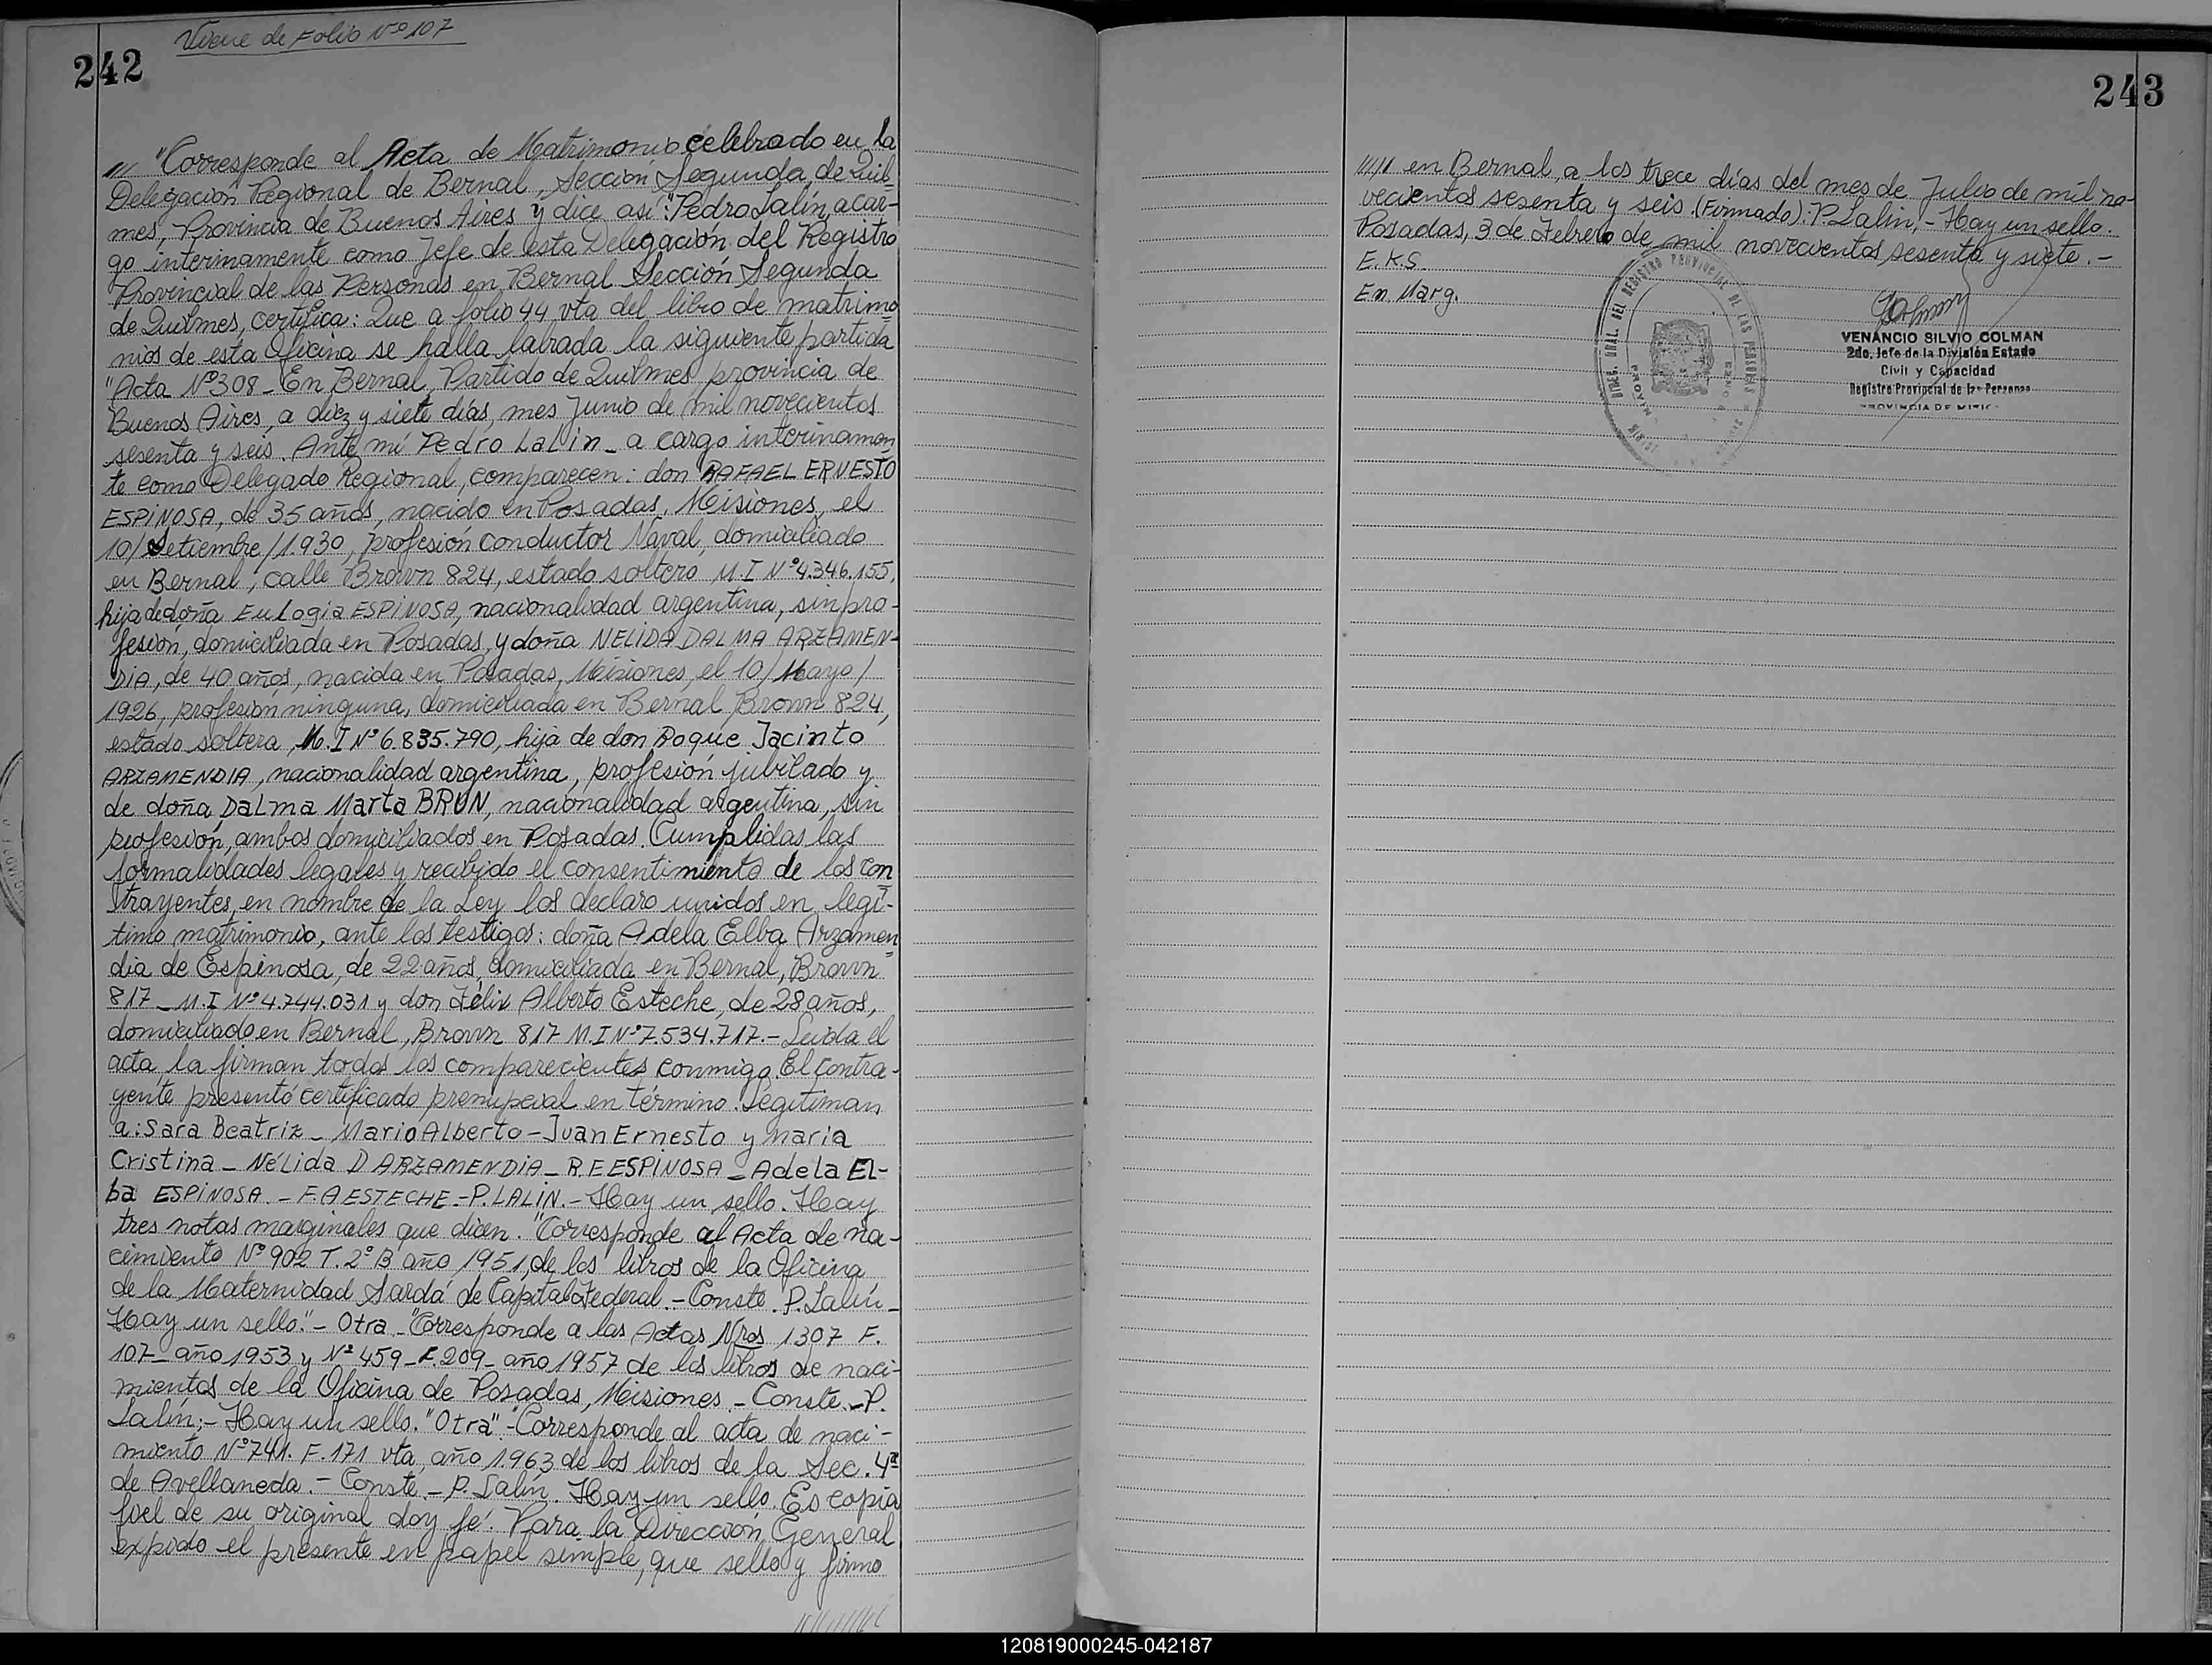 Viene de Folio Nº 107
242
/// "Corresponde al Acta de Matrimonio celebrado en la
Delegación Regional de Bernal, Sección Segunda, de Quil-
mes, Provincia de Buenos Aires y dice así: "Pedro Lalín, a car-
go interinamente como Jefe de esta Delegación del Registro
Provincial de las Personas en Bernal Sección Segunda
de Quilmes, certifica: Que a folio 44 vta del libro de matrimo
nios de esta Oficina se halla labrada la siguiente partida
"Acta Nº 308 - En Bernal, Partido de Quilmes provincia de
Buenos Aires, a diez y siete días, mes Junio de mil novecientos
sesenta y seis. Ante mí Pedro Lalin - a cargo interinamen
te como Delegado Regional, comparecen: don RAFAEL ERNESTO
ESPINOSA, de 35 años, nacido en Posadas, Misiones, el
10/Setiembre/1.930, profesión conductor Naval, domiciliado
en Bernal, calle Brown 824, estado soltero M.I Nº 4.346.155,
hija de doña EuLogia ESPINOSA, nacionalidad argentina, sin pro-
fesión, domiciliada en Posadas, y doña NELIDA DALMA ARZAMEN-
DIA, de 40 años, nacida en Posadas, Misiones, el 10/Mayo/
1926, profesión ninguna, domiciliada en Bernal Brown 824,
estado soltera, M.I Nº 6.835.790, hija de don Roque Jacinto
ARZAMENDIA, nacionalidad argentina, profesión jubilado y
de doña DaLma Marta BRUN, nacionalidad argentina, sin
profesión, ambos domiciliados en Posadas. Cumplidas las
formalidades legales y recibido el consentimiento de los con
trayentes, en nombre de la Ley los declaro unidos en legí-
timo matrimonio, ante los testigos: doña Adela Elba Arzamen
dia de Espinosa, de 22 años, domiciliada en Bernal, Brown
817 - M.I Nº 4.744.031 y don Félix Alberto Esteche, de 28 años,
domiciliado en Bernal, Brown 817 M.I Nº 7.534.717.- Leída el
acta la firman todos los comparecientes conmigo. El contra-
yente presentó certificado prenupcial en término. Legitiman
a: Sara Beatriz - Mario Alberto - Juan Ernesto y Maria
Cristina - NéLida D ARZAMENDIA - R.E ESPINOSA - Adela El-
ba ESPINOSA. - F.A ESTECHE.- P. LALIN.- Hay un sello. Hay
tres notas marginales que dicen. "Corresponde al Acta de na-
cimiento Nº 902 T. 2º B año 1951, de los libros de la Oficina
de la Maternidad Sardá de Capital Federal.- Conste. P. Lalín -
Hay un sello."- Otra - "Corresponde a las Actas Nros 1307 F.
107 - año 1953 y Nº 459 - F. 209 - año 1957 de los libros de naci-
mientos de la Oficina de Posadas, Misiones - Conste.- P.
Lalín:- Hay un sello. "Otra" - "Corresponde al acta de naci-
miento Nº 741. F. 171 vta, año 1.963 de los libros de la Sec. 4ª
de Avellaneda.- Conste - P. Lalín. Hay un sello. Es copia
fiel de su original doy fé. Para la Dirección General
expido el presente en papel simple, que sello y firmo
243
///// en Bernal, a los trece días del mes de Julio de mil no-
vecientos sesenta y seis. (Firmado): P. Lalin! - Hay un sello.
Posadas, 3 de Febrero de mil novecientos sesenta y siete. -
E.K.S.
En Marg.
DIREC. GRAL. DEL REGISTRO PROVINCIAL DE LAS PERSONAS
VENANCIO SILVIO COLMAN
2do. Jefe de la División Estado
Civil y Capacidad
Registro Provincial de las Personas
120819000245-042187